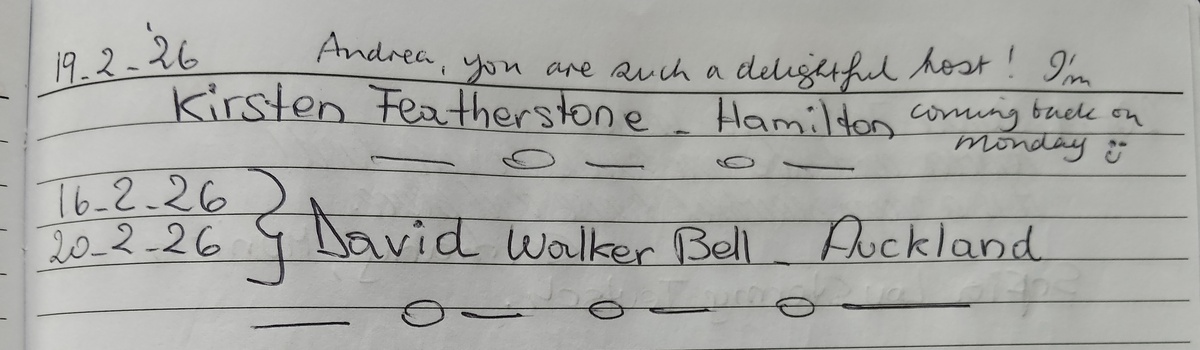 19-2-'26 Andrea, you are such a delightful host! I'm
Kirsten Featherstone - Hamilton coming back on
monday :)
16-2-26
20-2-26 } David Walker Bell - Auckland